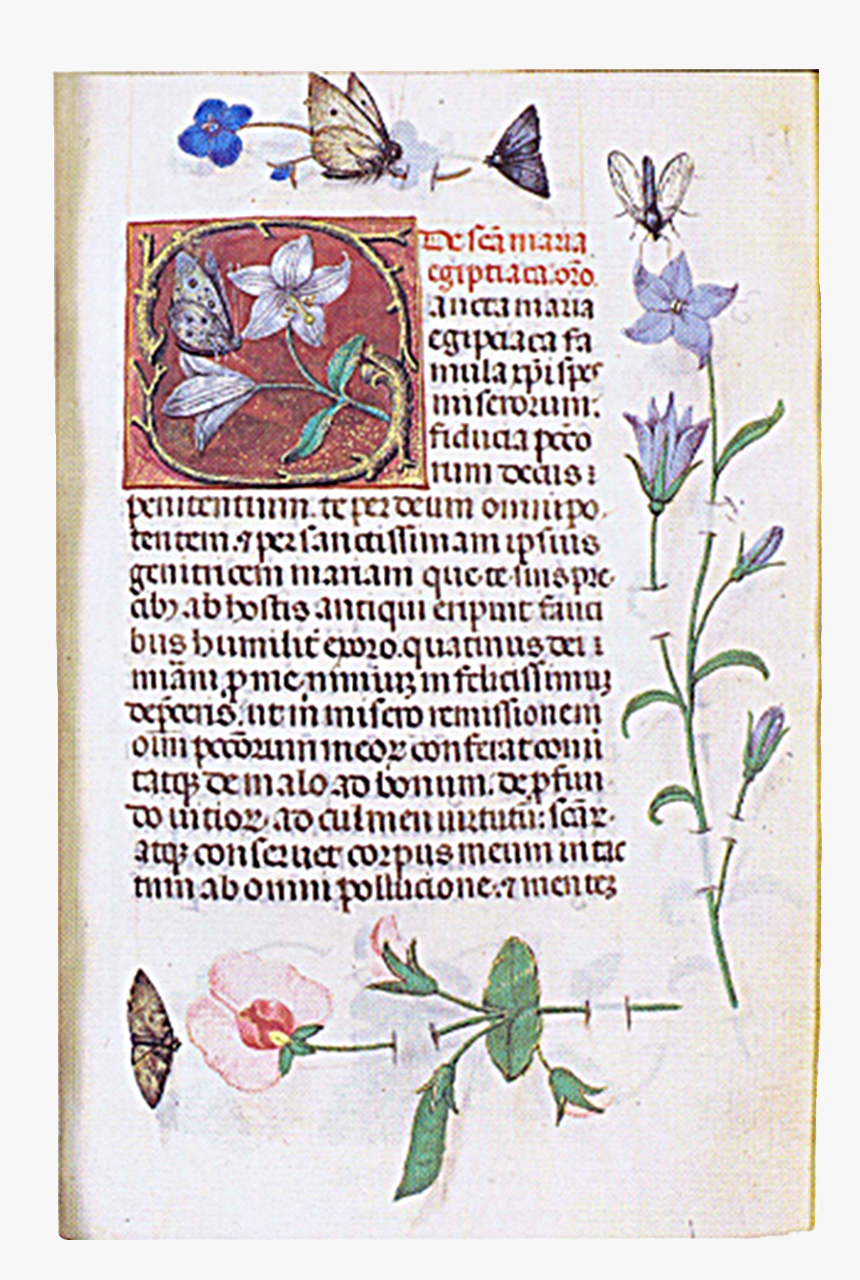 De scā maria
egiptiaca. oro.
Sancta maria
egiptiaca fa
mula xp̄i spes
miserorum:
fiducia pcco
rum decus:
penitentium. te per deum omnipo
tentem. ⁊ per sanctissimam ipsius
genitricem mariam que te suis pre
cibꝫ ab hostis antiqui eripuit fauci
bus humilit̄ exoro. quatinus dei
miām ꝓ me nimiuꝫ infelicissimuꝫ
depceris. ut in misero remissionem
oim pccōrum meoꝝ conferat comi
tatqꝫ de malo ad bonum. de ꝓfun
do vitioꝝ. ad culmen virtutū: scār
atqꝫ conseruet corpus meum intac
tum ab omni pollucione. ⁊ menteꝫ